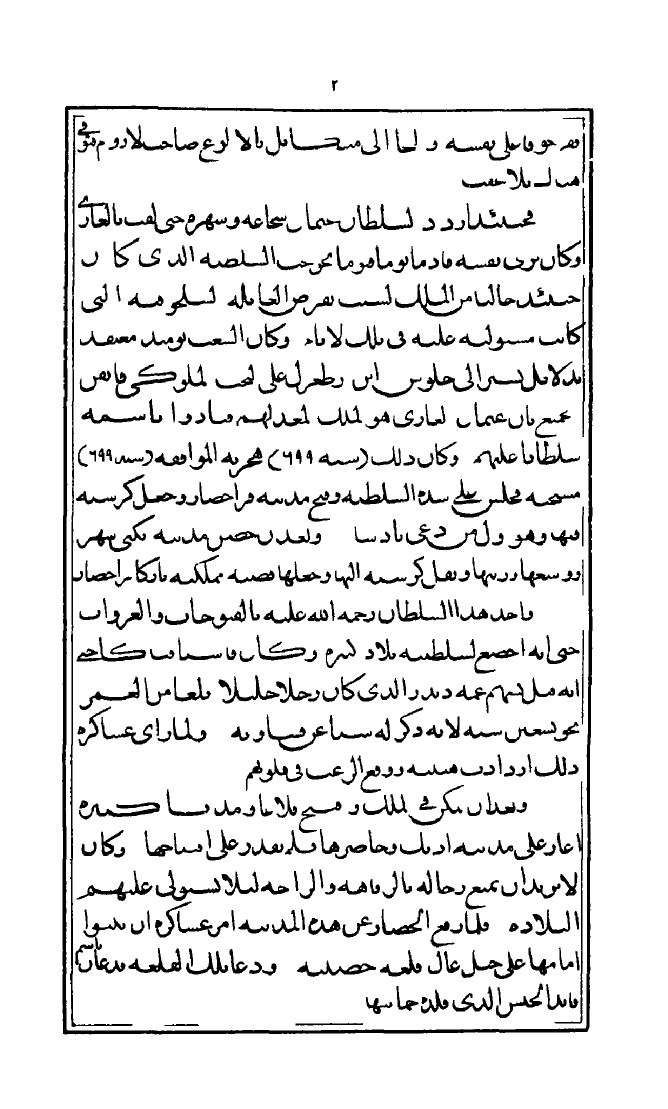 ففر خوفا على نفسه والتجا الى صاحب فتوفي
هناك بلا عقب
فحينئذ ازداد السلطان عثمان شجاعة وشهرة حتى لقب بالغازي
وكان يرى نفسه قادما يوما فيوما نحو تخت السلطنة الذي كان
حينئذ خاليا من الملك بسبب تقرض العائلة السلجوقية التي
كانت مستولية عليه في تلك الايام وكان الشعب يومئذ معتقد
بدلائل تشير الى جلوس ابن ارطغرل على التخت الملوكي فايقن
جميع بان عثمان الغازي هو الملك المعد لهم فنادوا باسمه
سلطانا عليهم وكان ذلك (سنه ٦٩٩) هجرية الموافقة (سنه ٦٩٩)
مسيحية فجلس على سدة السلطنة وفتح مدينة قراحصار وجعل كرسيه
فيها وهو اول من دعي بادشا وبعد ان حصن مدينة يكي شهر
ووسعها وزينها ونقل كرسيه اليها وجعلها قصبة مملكته تاركا قراحصار
واخذ هذا السلطان رحمة الله عليه بالفتوحات والغزوات
حتى انه اخضع لسلطته بلاد كثيرة وكان قاسيا
انه قتل بسهم عمه دندر الذي كان رجلا جليلا بالغا من العمر
نحو تسعين سنة لانه ذكر له شيئا عن مساويه ولما راى عساكره
ذلك ازدادت هيبته ووقع الرعب في قلوبهم
وبعد ان تمكن في الملك وفتح قلاعا ومدنا كثيرة
اغار على مدينة ازنيك وحاصرها فلم يقدر على افتتاحها وكان
لا يريد ان يمتع رجاله بالرفاهة والراحة لئلا يستولي عليهم
البلاده فلما رفع الحصار عن هذه المدينة امر عساكره ان يبنوا
امامها على جبل عال قلعة حصينة ودعا تلك القلعة باسم
قائد الجيش الذي قلده حمايتها
٢